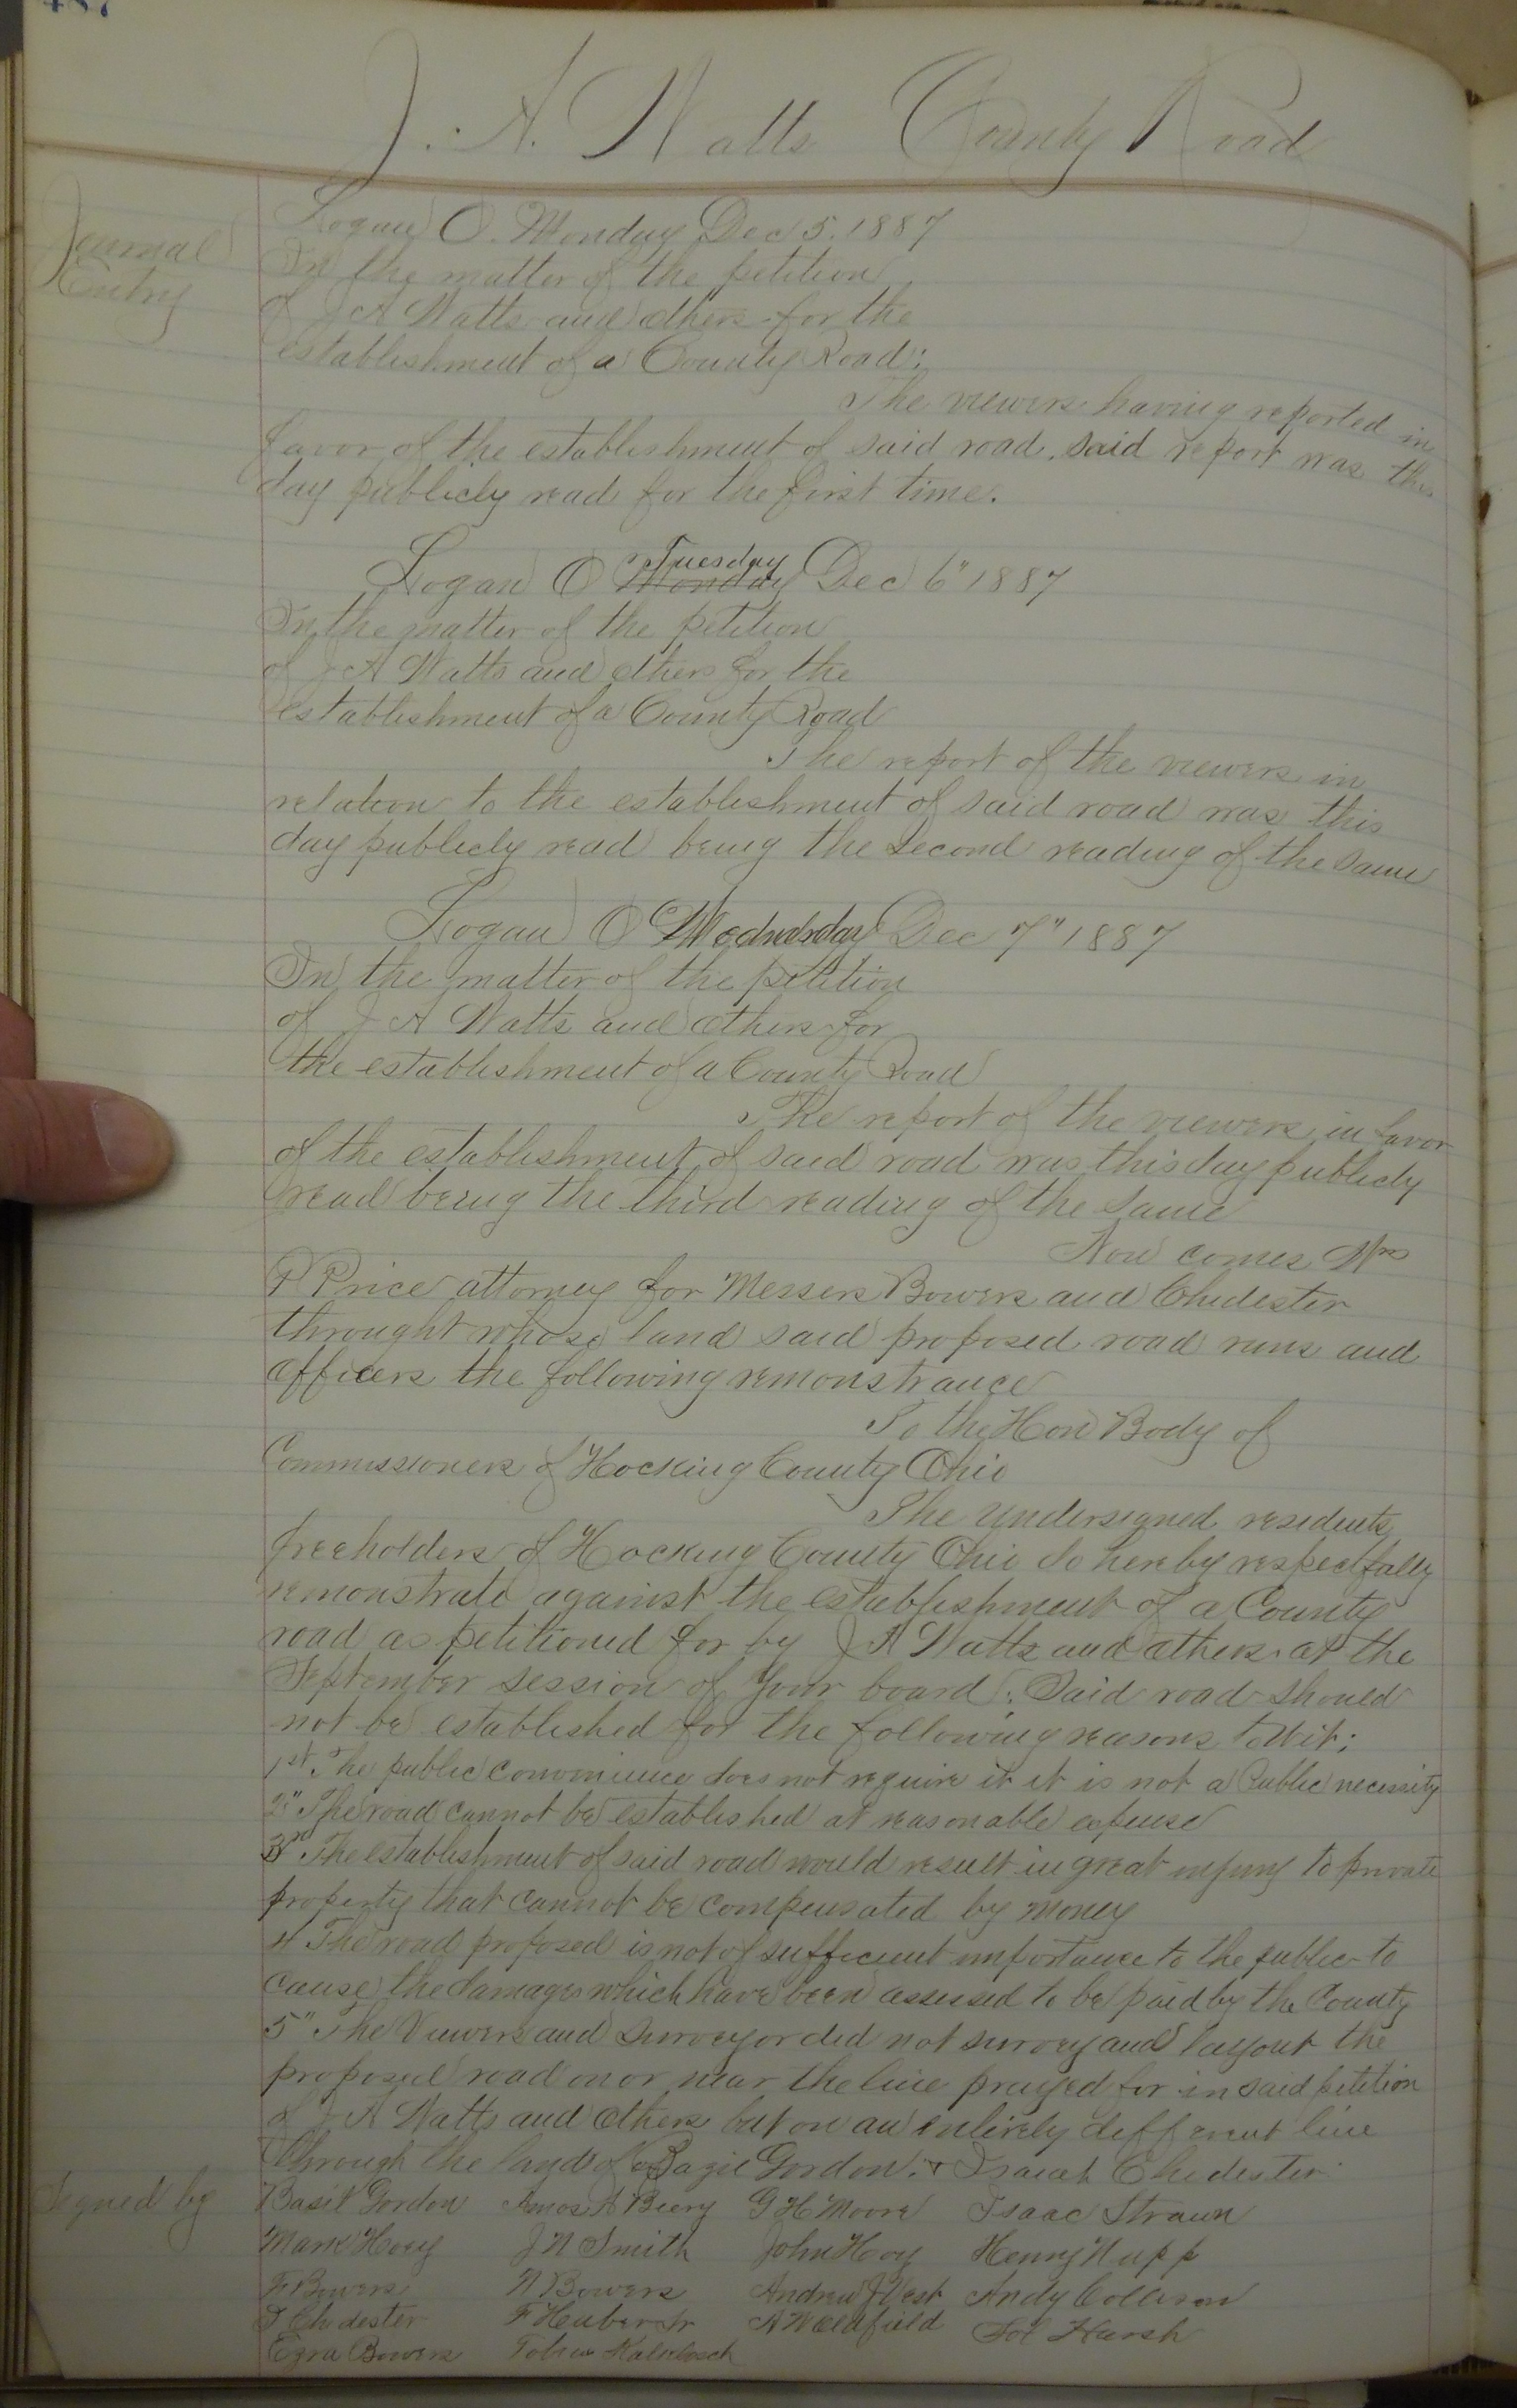 J. A. Watts County Road
Journal
Entry
Logan O. Monday Dec 5. 1887
In the matter of the petition
of J A Watts and others for the
establishment of a County Road;
The viewers having reported in
favor of the establishment of said road. said report was this
day publicly read for the first time.
Logan O Monday Tuesday Dec 6" 1887
In the matter of the petition
of J A Watts and others for the
establishment of a County Road
The report of the viewers in
relation to the establishment of said road was this
day publicly read being the second reading of the same
Logan O Wednesday Dec 7" 1887
In the matter of the petition
of J A Watts and others for
the establishment of a County Road
The report of the viewers in favor
of the establishment of said road was this day publicly
read being the third reading of the same
Now comes Wm
P Price attorney for Messers Bowers and Chidester
throught whose land said proposed road runs and
officers the following remonstrance
To the Hon Body of
Commissioners of Hocking County Ohio
The undersigned residents
freeholders of Hocking County Ohio do hereby respectfully
remonstrate against the establishment of a County
road as petitioned for by J A Watts and others at the
September session of Your board; Said road should
not be established for the following reasons to wit;
1st The public convenience does not require it it is not a Public necessity
2" The road cannot be established at reasonable expense
3rd The establishment of said road would result in great injury to private
property that cannot be compensated by money
4 The road proposed is not of sufficient importance to the public to
cause the damages which have been assessed to be paid by the County
5" The Viewers and Surveyor did not survey and layout the
proposed road on or near the line prayed for in said petition
of J A Watts and others but on an entirely different line
through the land of Bazil Gordon & Isaiah Chidester
Signed by
Basil Gordon Amos A Beery G H Moore Isaac Strawn
Mark Hoey J W Smith John Hoy Henry Nupp
F Bowers W Bowers Andrew J West Andy Collison
I Chidester F Heuber Jr A W Oldfield Sol Harsh
Ezra Bowers Tobias